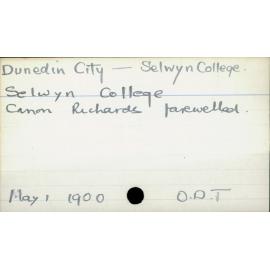 Dunedin City — Selwyn College.
Selwyn College
Canon Richards farewelled.
May 1 1900 O.D.T